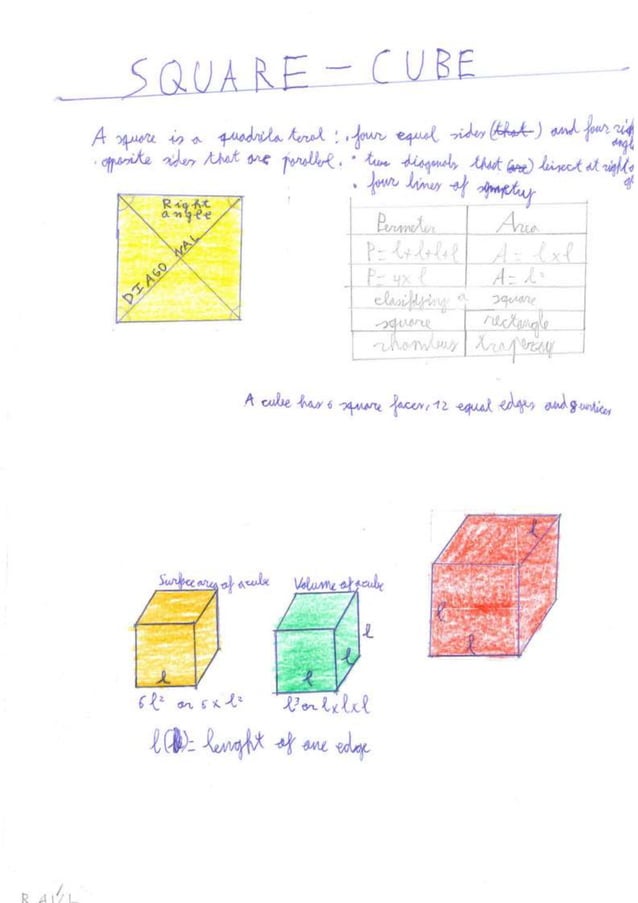 SQUARE - CUBE
A square is a quadrila teral: . four equal sides (that) and four rig
angle
. opposite sides that are parallel. • two diagonals that (are) bisect at right
• four lines of symetry
Right
angle
DIAGO NAL
Perimeter Area
P= l+l+l+l A = l x l
P= 4x l A= l²
clasifying a square
square rectangle
rhombus
A cube has 6 square faces, 12 equal edges and 8 vertices
Surface area of a cube Volume of a cube
l
l
l
l
l
l
l
6 l² or 6 x l² l³ or l x l x l
l = lenght of one edge
RAÚL